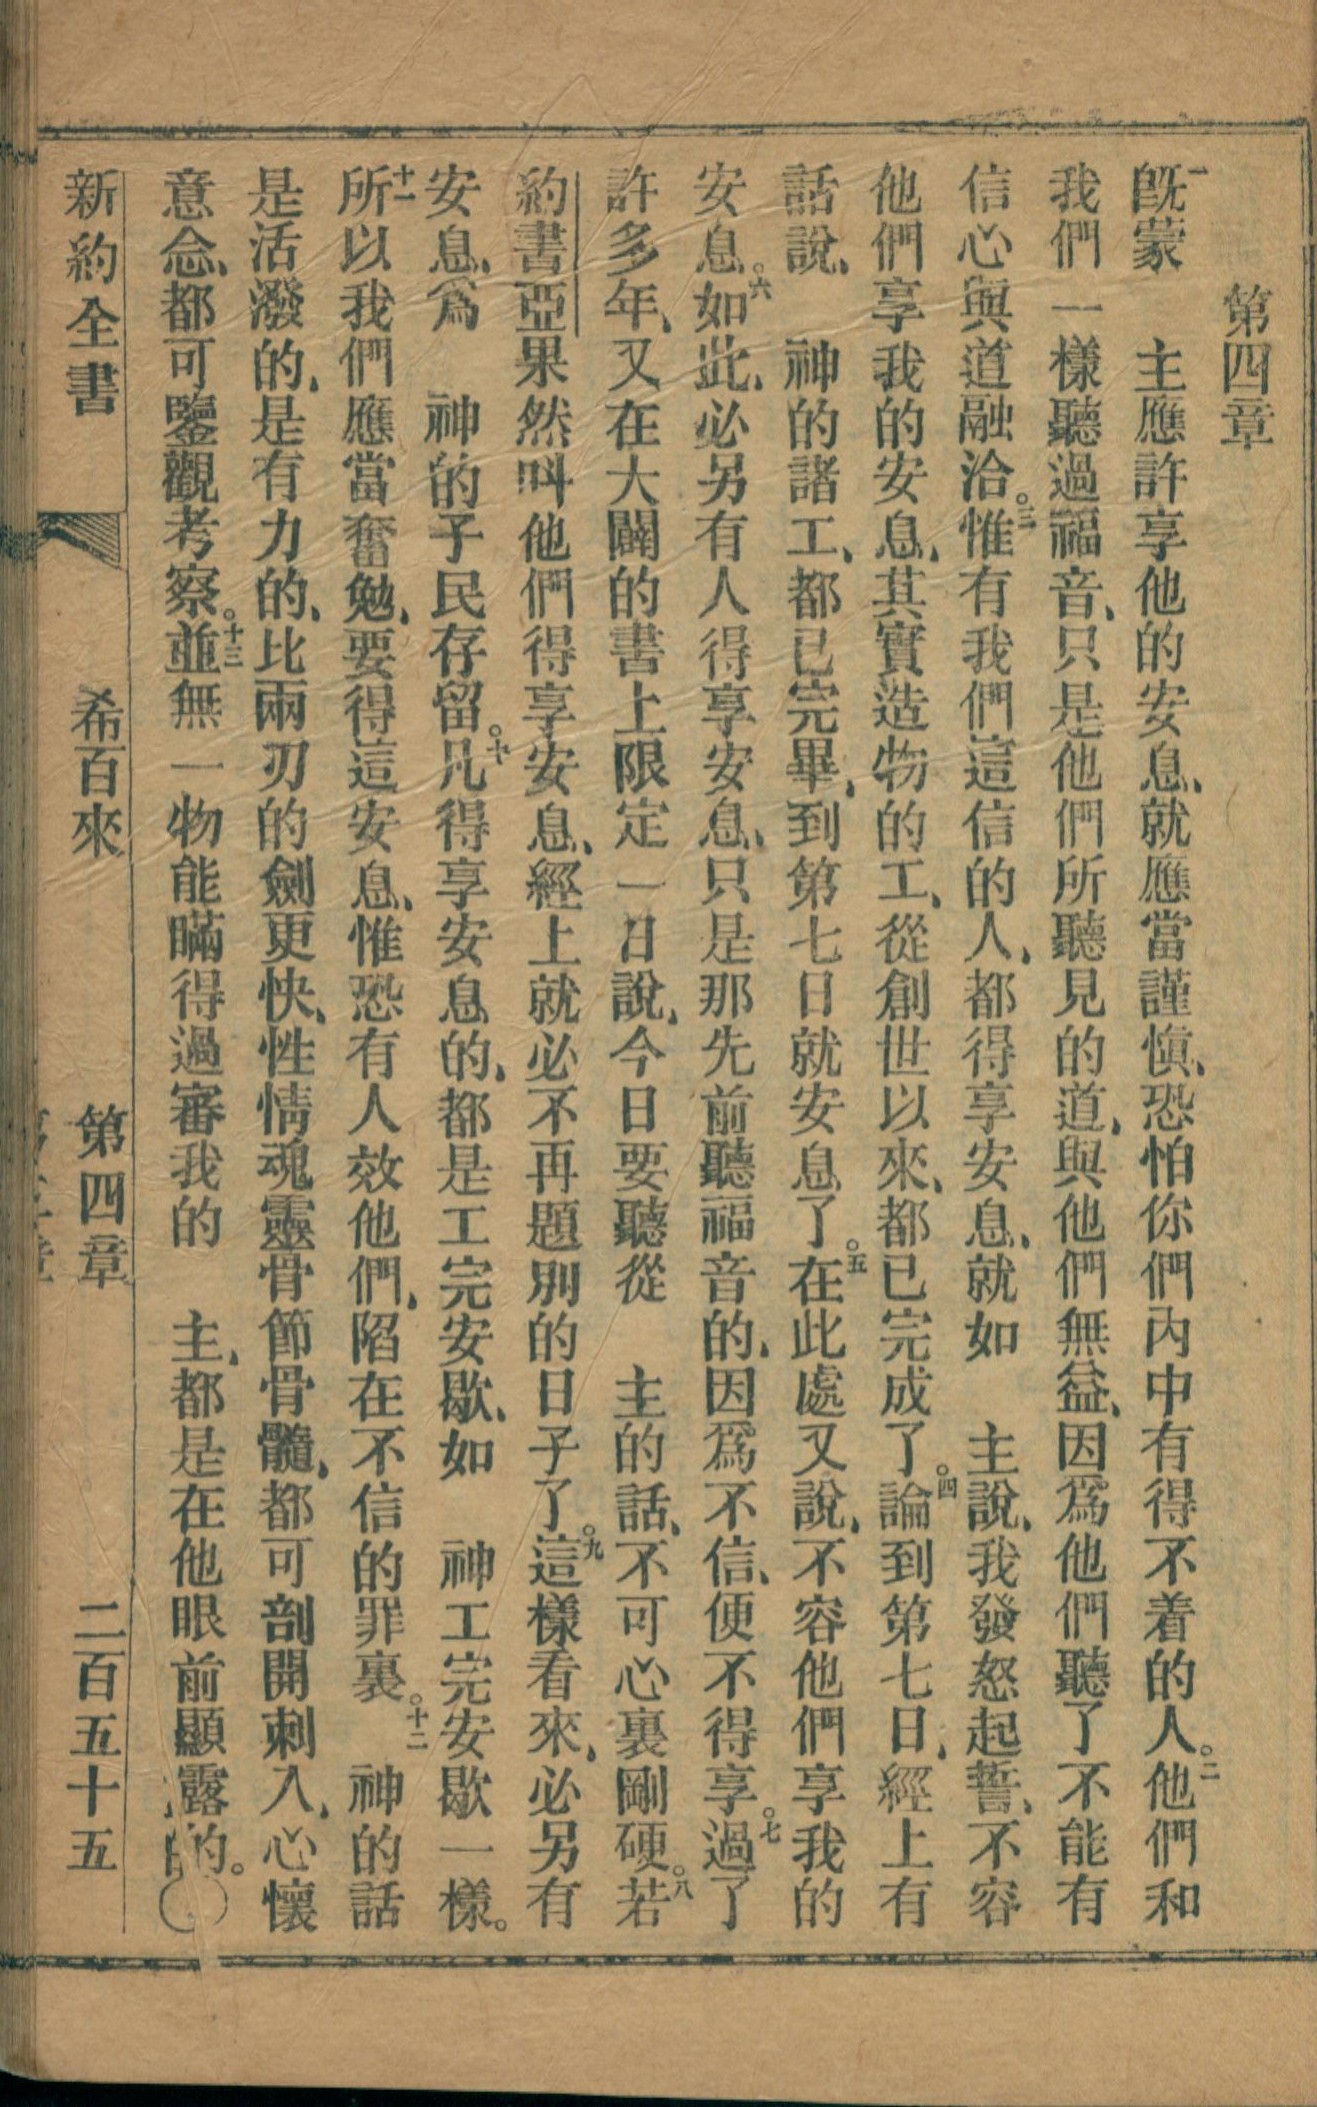 第四章
一既蒙　主應許享他的安息、就應當謹愼、恐怕你們內中有得不着的人。二他們和
我們一樣聽過福音、只是他們所聽見的道、與他們無益、因爲他們聽了不能有
信心與道融洽。三惟有我們這信的人、都得享安息、就如　主說、我發怒起誓、不容
他們享我的安息、其實造物的工、從創世以來、都已完成了。四論到第七日、經上有
話說、　神的諸工、都已完畢、到第七日就安息了。五在此處又說、不容他們享我的
安息。六如此、必另有人得享安息、只是那先前聽福音的、因爲不信、便不得享。七過了
許多年、又在大闢的書上限定一日說、今日要聽從　主的話、不可心裏剛硬。八若
約書亞果然叫他們得享安息、經上就必不再題別的日子了。九這樣看來、必另有
安息、爲　神的子民存留。十凡得享安息的、都是工完安歇、如　神工完安歇一樣。
十一所以我們應當奮勉、要得這安息、惟恐有人效他們、陷在不信的罪裏。十二　神的話
是活潑的、是有力的、比兩刃的劍更快、性情魂靈骨節骨髓、都可剖開刺入、心懷
意念、都可鑒觀考察。十三並無一物能瞞得過審我的　主、都是在他眼前顯露的。〇
新約全書　希百來　第四章　二百五十五